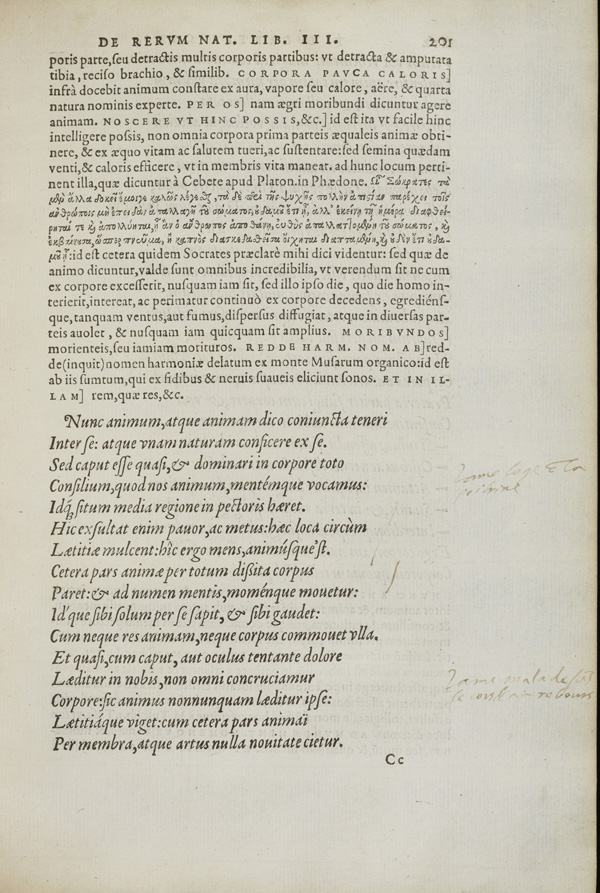 DE RERVM NAT. LIB. III. 201
poris parte, seu detractis multis corporis partibus: vt detracta & amputata
tibia, reciso brachio, & similib. CORPORA PAVCA CALORIS]
infrà docebit animum constare ex aura, vapore seu calore, aëre, & quarta
natura nominis experte. PER OS] nam ægri moribundi dicuntur agere
animam. NOSCERE VT HINC POSSIS, &c.] id est ita vt facile hinc
intelligere possis, non omnia corpora prima parteis æqualeis animæ obti-
nere, & ex æquo vitam ac salutem tueri, ac sustentare: sed semina quædam
venti, & caloris efficere, vt in membris vita maneat. ad hunc locum perti-
nent illa, quæ dicuntur à Cebete apud Platon. in Phædone. Σώκρατες τὰ
ἄλλα δοκεῖ ἔμοιγε καλῶς λέγεσθαι, τὰ δὲ περὶ τῆς ψυχῆς πολλὴν ἀπιστίαν παρέχει τοῖς
ἀνθρώποις μὴ ἐπειδὰν ἀπαλλαγῇ τοῦ σώματος, οὐδαμοῦ ἔτι ᾖ, ἀλλ' ἐκείνῃ τῇ ἡμέρᾳ διαφθεί-
ρηταί τε καὶ ἀπολλύηται, ᾗ ἂν ὁ ἄνθρωπος ἀποθάνῃ, εὐθὺς ἀπαλλαττομένη τοῦ σώματος, καὶ
ἐκβαίνουσα, ὥσπερ πνεῦμα, ἢ καπνὸς διασκεδασθεῖσα οἴχηται διαπτομένη, καὶ οὐδὲν ἔτι οὐδα-
μοῦ ᾖ: id est cetera quidem Socrates præclarè mihi dici videntur: sed quæ de
animo dicuntur, valde sunt omnibus incredibilia, vt verendum sit ne cum
ex corpore excesserit, nusquam iam sit, sed illo ipso die, quo die homo in-
terierit, intereat, ac perimatur continuò ex corpore decedens, egrediéns-
que, tanquam ventus, aut fumus, dispersus diffugiat, atque in diuersas par-
teis auolet, & nusquam iam quicquam sit amplius. MORIBVNDOS]
morienteis, seu iamiam morituros. REDDE HARM. NOM. AB] red-
de (inquit) nomen harmoniæ delatum ex monte Musarum organico: id est
ab iis sumtum, qui ex fidibus & neruis suaueis eliciunt sonos. ET IN IL-
LAM] rem, quæ res, &c.
Nunc animum, atque animam dico coniuncta teneri
Inter se: atque vnam naturam conficere ex se.
Sed caput esse quasi, & dominari in corpore toto
Consilium, quod nos animum, mentémque vocamus:
Idq́; situm media regione in pectoris hæret.
Hic exsultat enim pauor, ac metus: hæc loca circùm
Lætitiæ mulcent: hîc ergo mens, animúsque'st.
Cetera pars animæ per totum dissita corpus
Paret: & ad numen mentis, moménque mouetur:
Id'que sibi solum per se sapit, & sibi gaudet:
Cum neque res animam, neque corpus commouet vlla.
Et quasi, cum caput, aut oculus tentante dolore
Læditur in nobis, non omni concruciamur
Corpore: sic animus nonnunquam læditur ipse:
Lætitiáque viget: cum cetera pars animaï
Per membra, atque artus nulla nouitate cietur.
Cc